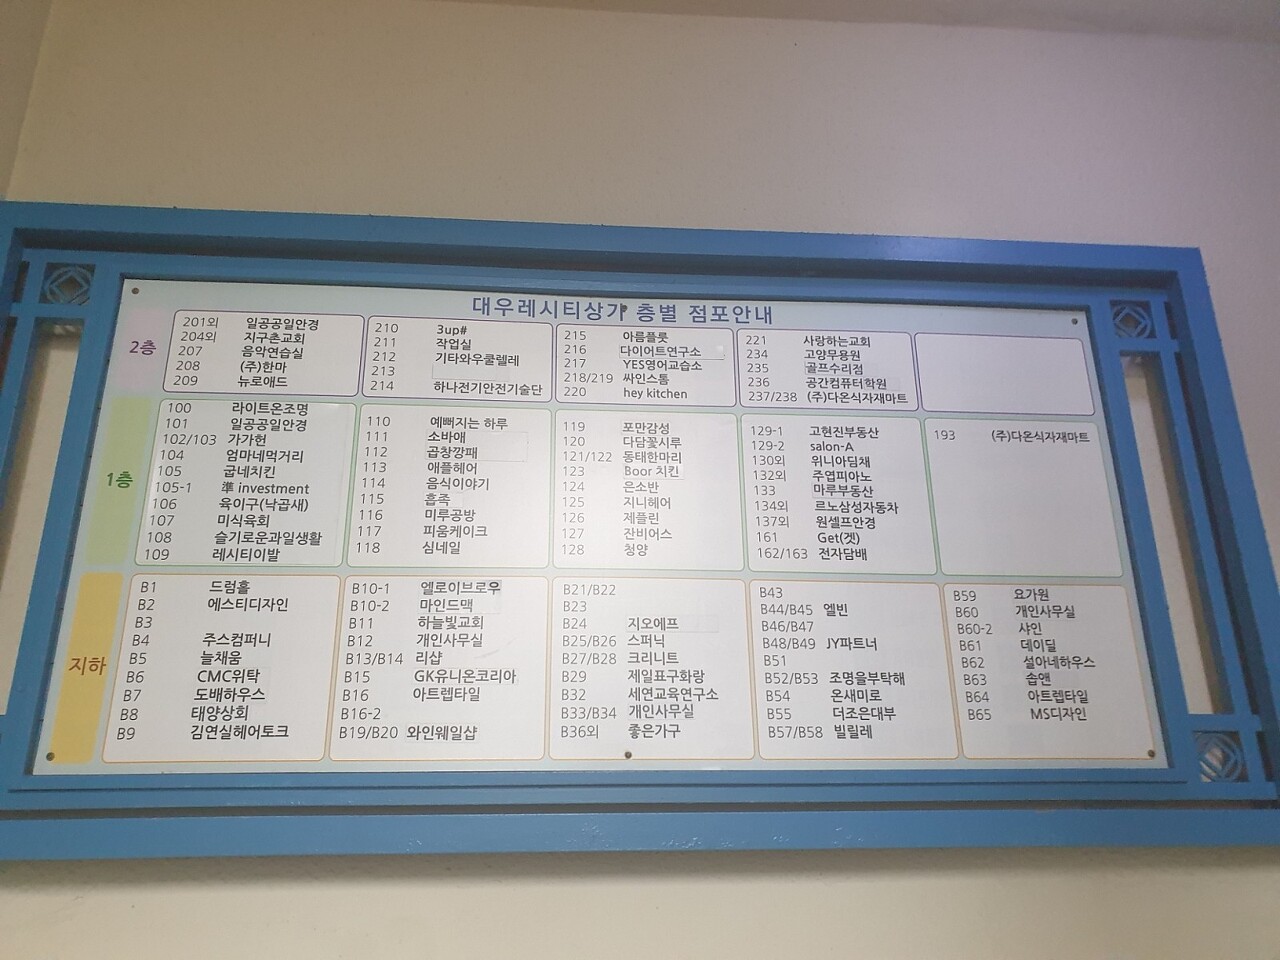 대우레시티상가 층별 점포안내
2층
201외 일공공일안경
204외 지구촌교회
207 음악연습실
208 (주)한마
209 뉴로애드
210 3up#
211 작업실
212 기타와우쿨렐레
213
214 하나전기안전기술단
215 아름플룻
216 다이어트연구소
217 YES영어교습소
218/219 싸인스톰
220 hey kitchen
221 사랑하는교회
234 고양무용원
235 골프수리점
236 공간컴퓨터학원
237/238 (주)다온식자재마트
1층
100 라이트온조명
101 일공공일안경
102/103 가가헌
104 엄마네먹거리
105 굽네치킨
105-1 準 investment
106 육이구(낙곱새)
107 미식육회
108 슬기로운과일생활
109 레시티이발
110 예뻐지는 하루
111 소바애
112 곱창깡패
113 애플헤어
114 음식이야기
115 흡족
116 미루공방
117 피움케이크
118 심네일
119 포만감성
120 다담꽃시루
121/122 동태한마리
123 Boor 치킨
124 은소반
125 지니헤어
126 제플린
127 잔비어스
128 청양
129-1 고현진부동산
129-2 salon-A
130외 위니아딤채
132외 주엽피아노
133 마루부동산
134외 르노삼성자동차
137외 원셀프안경
161 Get(겟)
162/163 전자담배
193 (주)다온식자재마트
지하
B1 드럼홀
B2 에스티디자인
B3
B4 주스컴퍼니
B5 늘채움
B6 CMC위탁
B7 도배하우스
B8 태양상회
B9 김연실헤어토크
B10-1 엘로이브로우
B10-2 마인드맥
B11 하늘빛교회
B12 개인사무실
B13/B14 리샵
B15 GK유니온코리아
B16 아트렙타일
B16-2
B19/B20 와인웨일샵
B21/B22
B23
B24 지오에프
B25/B26 스퍼닉
B27/B28 크리니트
B29 제일표구화랑
B32 세연교육연구소
B33/B34 개인사무실
B36외 좋은가구
B43
B44/B45 엘빈
B46/B47
B48/B49 JY파트너
B51
B52/B53 조명을부탁해
B54 온새미로
B55 더조은대부
B57/B58 빌릴레
B59 요가원
B60 개인사무실
B60-2 샤인
B61 데이딜
B62 설아네하우스
B63 솝앤
B64 아트렙타일
B65 MS디자인